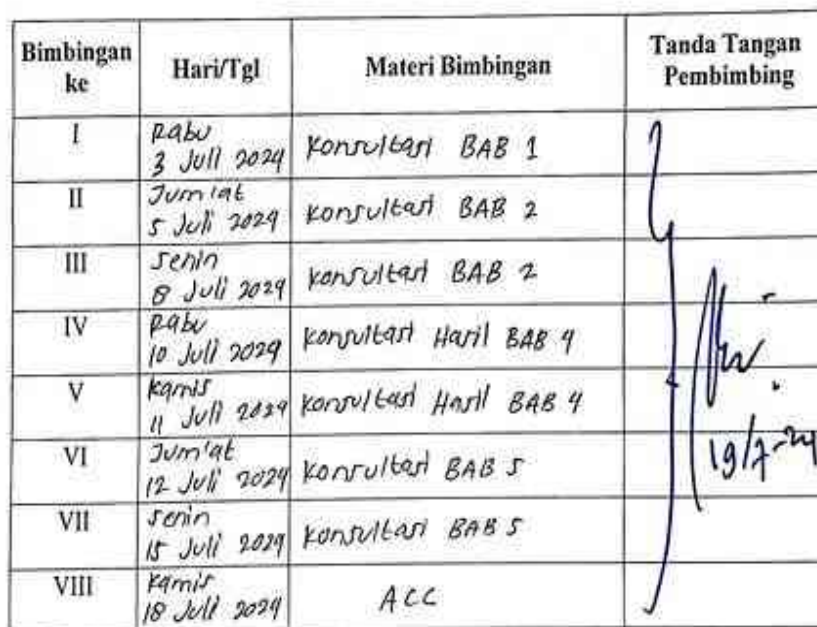 Bimbingan ke Hari/Tgl Materi Bimbingan Tanda Tangan Pembimbing
I Rabu 3 Juli 2024 Konsultasi BAB 1
II Jum'at 5 Juli 2024 Konsultasi BAB 2
III Senin 8 Juli 2024 Konsultasi BAB 2
IV Rabu 10 Juli 2024 Konsultasi Hasil BAB 4
V Kamis 11 Juli 2024 Konsultasi Hasil BAB 4
VI Jum'at 12 Juli 2024 Konsultasi BAB 5
VII Senin 15 Juli 2024 Konsultasi BAB 5
VIII Kamis 18 Juli 2024 ACC
19/7-24